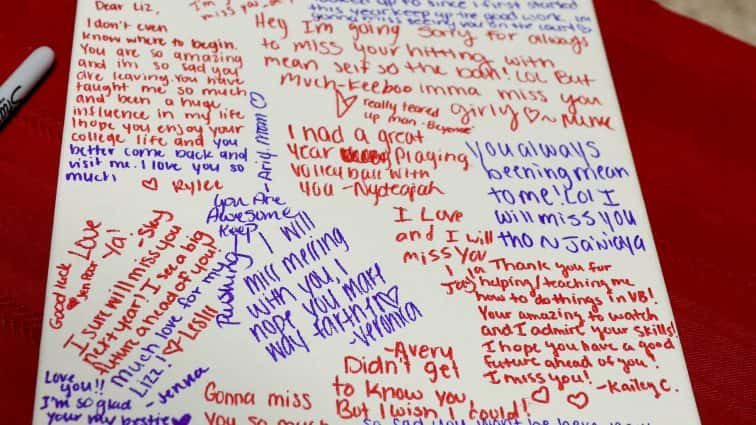 Dear Liz,
I don't even
know where to begin.
You are so amazing
and im so sad you
are leaving. You have
taught me so much
and been a huge
influence in my life
I hope you enjoy your
college life and you
better come back and
visit me. I love you so
much!
♡ Rylee
- Ariq. Mom ♡
since I first started
this year keep up the good work. im
gonna miss seeing you on the court
Hey Im going Sorry for always
to miss your hittting with
mean self so the ball! LOL But
much-Keeboo imma miss you
girly ♡~ Nunu
really teared
up man -Beyonce
I had a great
year playing
volleyball with
you -Nydeajah
You always
beening mean
to me! Lol I
will miss you
tho ~ Janiaya
You Are
Awesome
Keep
Pushing
I Love
and I will
miss you
Thank you for
helping/teaching me
how to do things in VB!
Your amazing to watch
and I admire your skills!
I hope you have a good
future ahead of you!
I miss you!
-Kailey C.
Good luck
Love
Ya!
Jen Poor
I sure will miss you
next year! I see a big
future ahead of you!
-Sky
Much love for my
Lizz! ♡ -Leslie
I will
miss messing
with you I
hope you make
way farther ♡
-Veronica
-Avery
Didn't get
to know you,
But I wish I could!
Love
you!!
I'm so glad
your my bestie
-Jenna
Gonna miss
you so much
so sad you wont be here